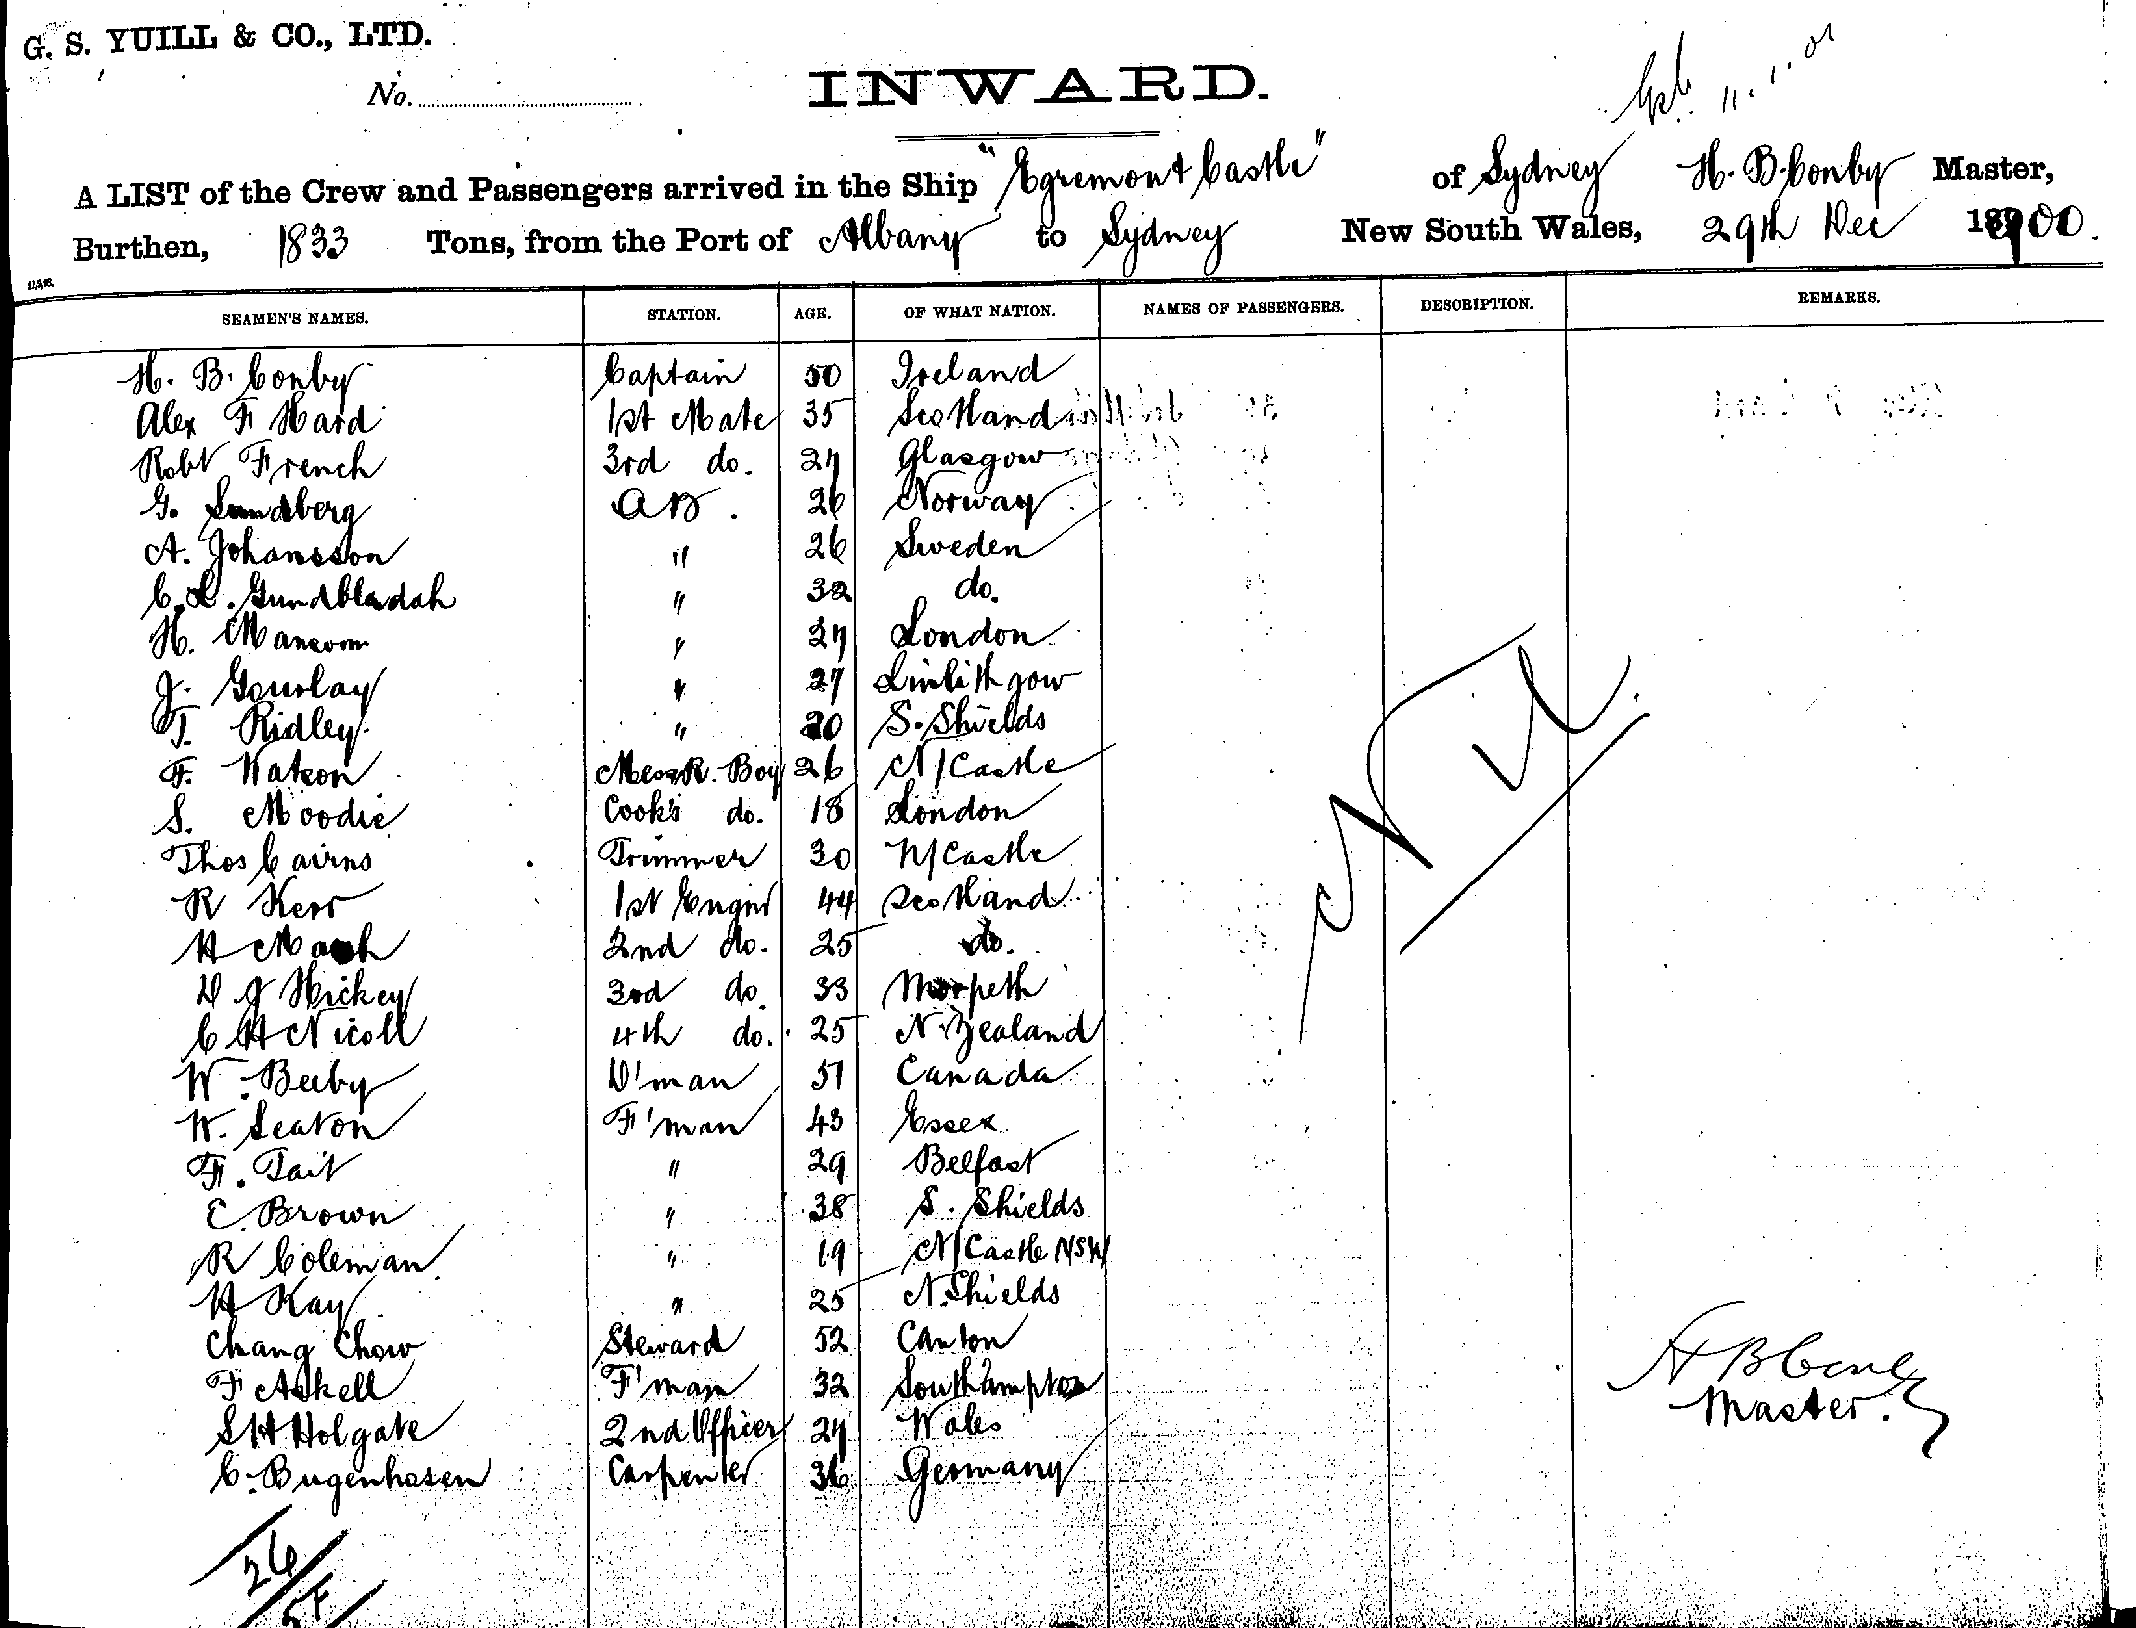 G. S. YUILL & CO., LTD.
No.
INWARD.
11.1.01
A LIST of the Crew and Passengers arrived in the Ship "Egremont Castle" of Sydney H. B. Conby Master,
Burthen, 1833 Tons, from the Port of Albany to Sydney New South Wales, 29th Dec 1900.
SEAMEN'S NAMES. STATION. AGE. OF WHAT NATION. NAMES OF PASSENGERS. DESCRIPTION. REMARKS.
H. B. Conby Captain 50 Ireland
Alex F Hard 1st Mate 35 Scotland
Robt French 3rd do. 27 Glasgow
G. Sundberg AB. 26 Norway
A. Johansson " 26 Sweden
C. L. Gundbladah " 32 do.
H. " 27 London
J. Gourlay " 27 Linlithgow
T. Ridley " 20 S. Shields
F. Watson Mess R. Boy 26 N/Castle
S. Moodie Cook's do. 18 London
Thos Cairns Trimmer 30 N/Castle
R Kerr 1st Enginr 44 Scotland
H 2nd do. 25 do.
D J Hickey 3rd do. 33 Morpeth
C H Nicoll 4th do. 25 N. Zealand
W. Beeby D'man 51 Canada
W. Seaton F'man 43 Essex
F. Tait " 29 Belfast
E. Brown " 38 S. Shields
R Coleman " 19 N/Castle NSW
H Kay " 25 N. Shields
Chang Chow Steward 52 Canton
F Askell F'man 32 Southampton
S H Holgate 2nd Officer 27 Wales
C. Bugenhasen Carpenter 36 Germany
Nil.
H B Conby
Master.
26